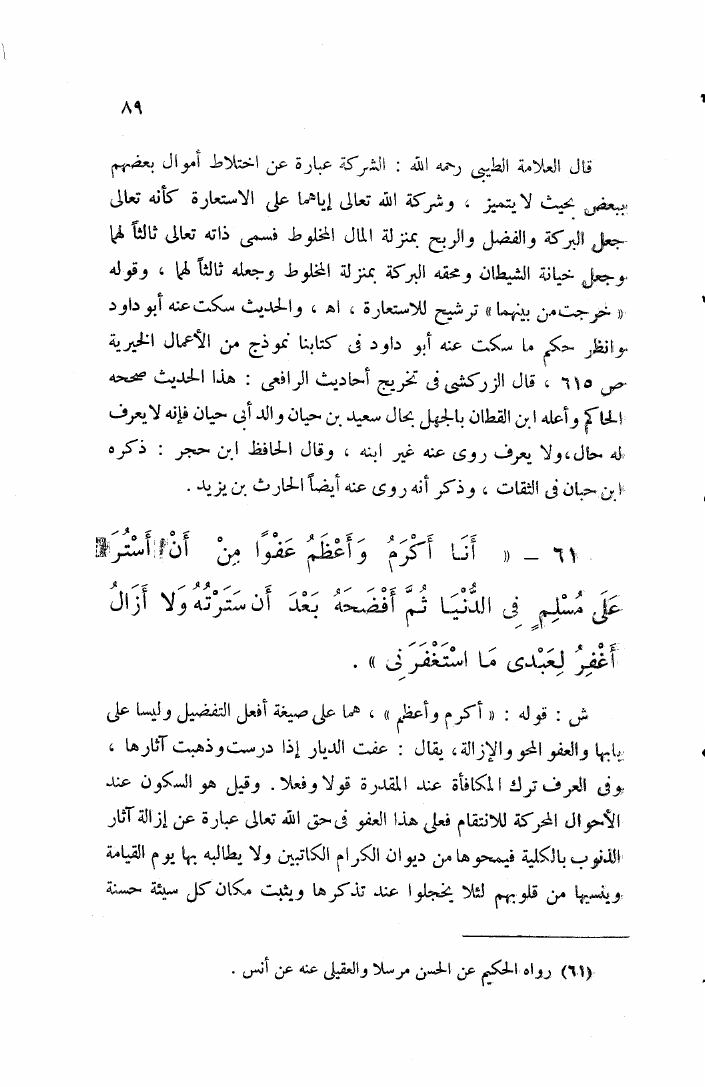 ٨٩
قال العلامة الطيبى رحمه الله : الشركة عبارة عن اختلاط أموال بعضهم
ببعض بحيث لا يتميز ، وشركة الله تعالى إياهما على الاستعارة كأنه تعالى
جعل البركة والفضل والربح بمنزلة المال المخلوط فسمى ذاته تعالى ثالثاً لهما
وجعل خيانة الشيطان ومحقه البركة بمنزلة المخلوط وجعله ثالثاً لهما ، وقوله
« خرجت من بينهما » ترشيح للاستعارة ، اه ، والحديث سكت عنه أبو داود
وانظر حكم ما سكت عنه أبو داود فى كتابنا نموذج من الأعمال الخيرية
ص ٦١٥ ، قال الزركشى فى تخريج أحاديث الرافعى : هذا الحديث صححه
الحاكم وأعله ابن القطان بالجهل بحال سعيد بن حيان والد أبى حيان فإنه لا يعرف
له حال، ولا يعرف روى عنه غير ابنه ، وقال الحافظ ابن حجر : ذكره
ابن حبان فى الثقات ، وذكر أنه روى عنه أيضاً الحارث بن يزيد .
٦١ – « أَنَا أَكْرَمُ وَأَعْظَمُ عَفْوًا مِنْ أَنْ أَسْتُرَ
عَلَى مُسْلِمٍ فِى الدُّنْيَا ثُمَّ أَفْضَحَهُ بَعْدَ أَن سَتَرْتُهُ وَلَا أَزَالُ
أَغْفِرُ لِعَبْدِى مَا اسْتَغْفَرَنِى » .
ش : قوله : « أكرم وأعظم » ، هما على صيغة أفعل التفضيل وليسا على
بابها والعفو المحو والإزالة، يقال : عفت الديار إذا درست وذهبت آثارها ،
وفى العرف ترك المكافأة عند المقدرة قولا وفعلا . وقيل هو السكون عند
الأحوال المحركة للانتقام فعلى هذا العفو فى حق الله تعالى عبارة عن إزالة آثار
الذنوب بالكلية فيمحوها من ديوان الكرام الكاتبين ولا يطالبه بها يوم القيامة
وينسيها من قلوبهم لئلا يخجلوا عند تذكرها ويثبت مكان كل سيئة حسنة
(٦١) رواه الحكيم عن الحسن مرسلا والعقيلى عنه عن أنس .